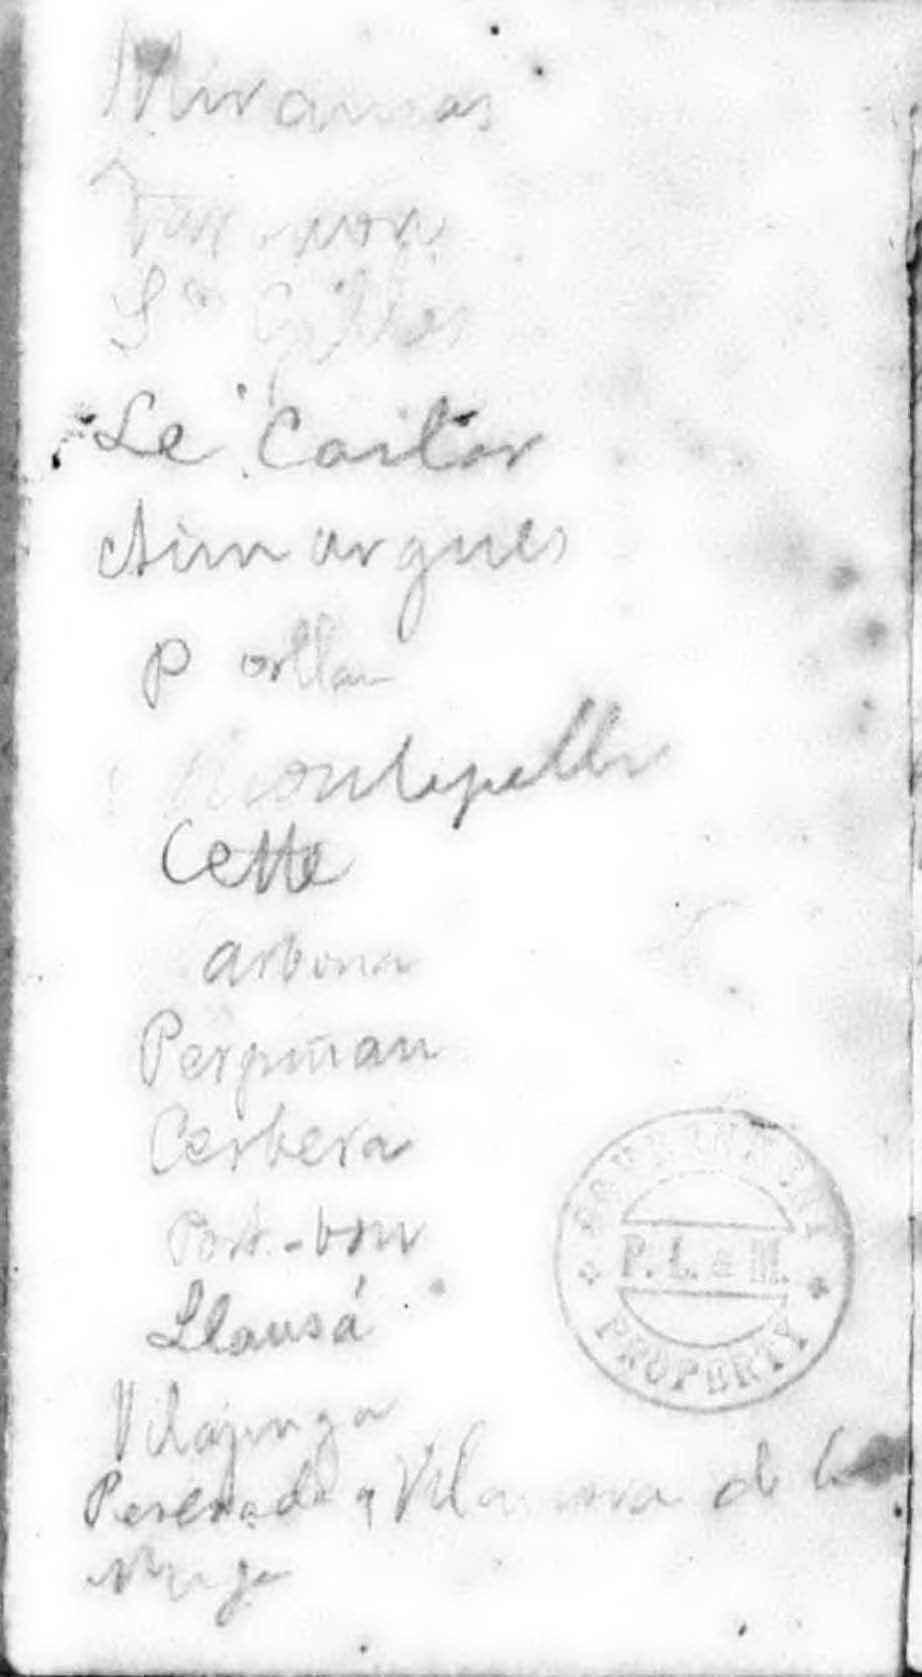 Miramas
Tarascon
St Gilles
Le Cailar
Aimargues
Montepellier
Cette
arbona
Perpiñan
Cerbera
Port-bou
Llansá
Vilajuiga
Perelada y Vilanova de la
Muga
GOVERNMENT
P. L. & M.
PROPERTY